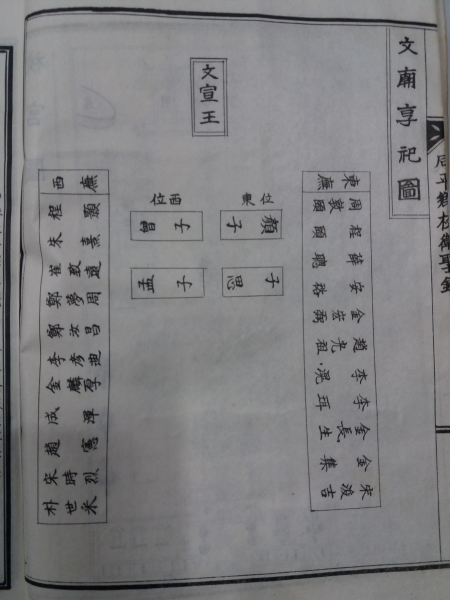 文廟享祀圖
平鄕校衛聖錄
文宣王
東位
顔子
子思
西位
曾子
孟子
東廡
周敦頤
程頤
薛聰
安裕
金宏弼
趙光祖
李滉
李珥
金長生
金集
宋浚吉
西廡
程顥
朱熹
崔致遠
鄭夢周
鄭汝昌
李彦迪
金麟厚
成渾
趙憲
宋時烈
朴世采